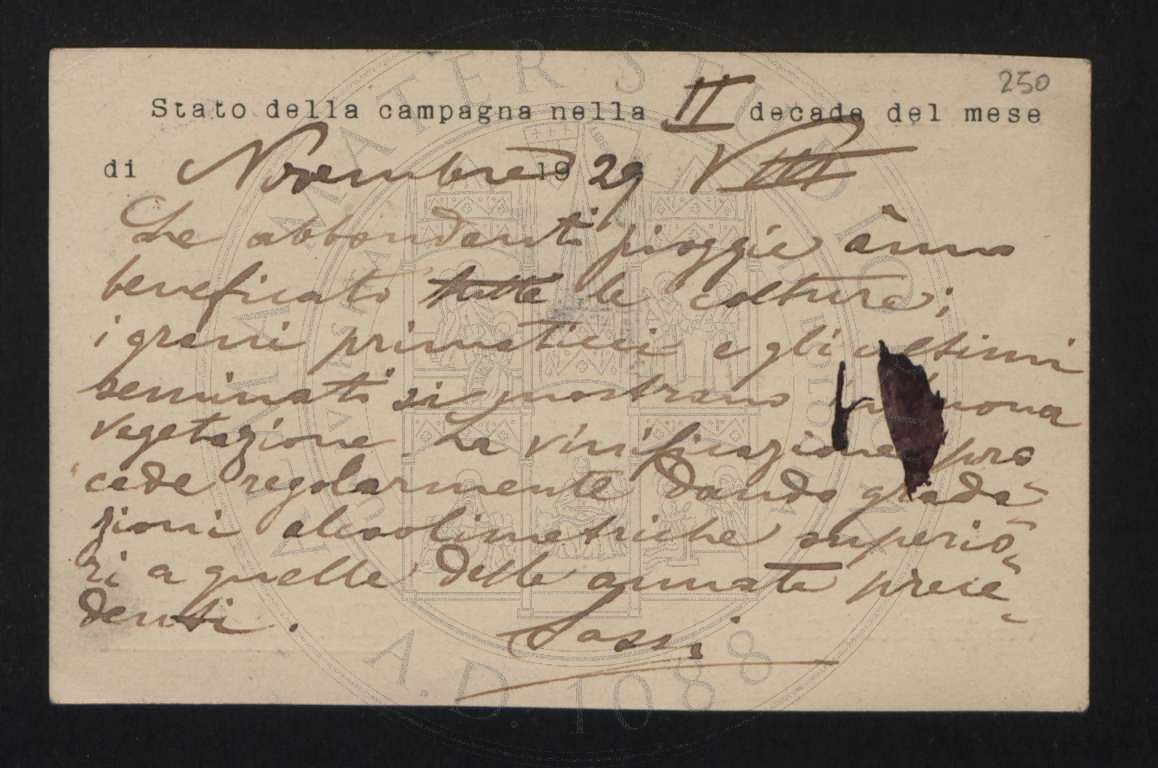 250
Stato della campagna nella II decade del mese
di Novembre 1929 VIII
Le abbondanti pioggie ânno
beneficato tutte le colture;
i grani primaticci e gli ultimi
seminati si mostrano in buona
vegetazione. La vinificazione pro
cede regolarmente dando grada-
zioni alcoolimetriche superio-
ri a quelle delle annate prece-
denti.
Sassi
ALMA MATER STUDIORUM
A.D. 1088